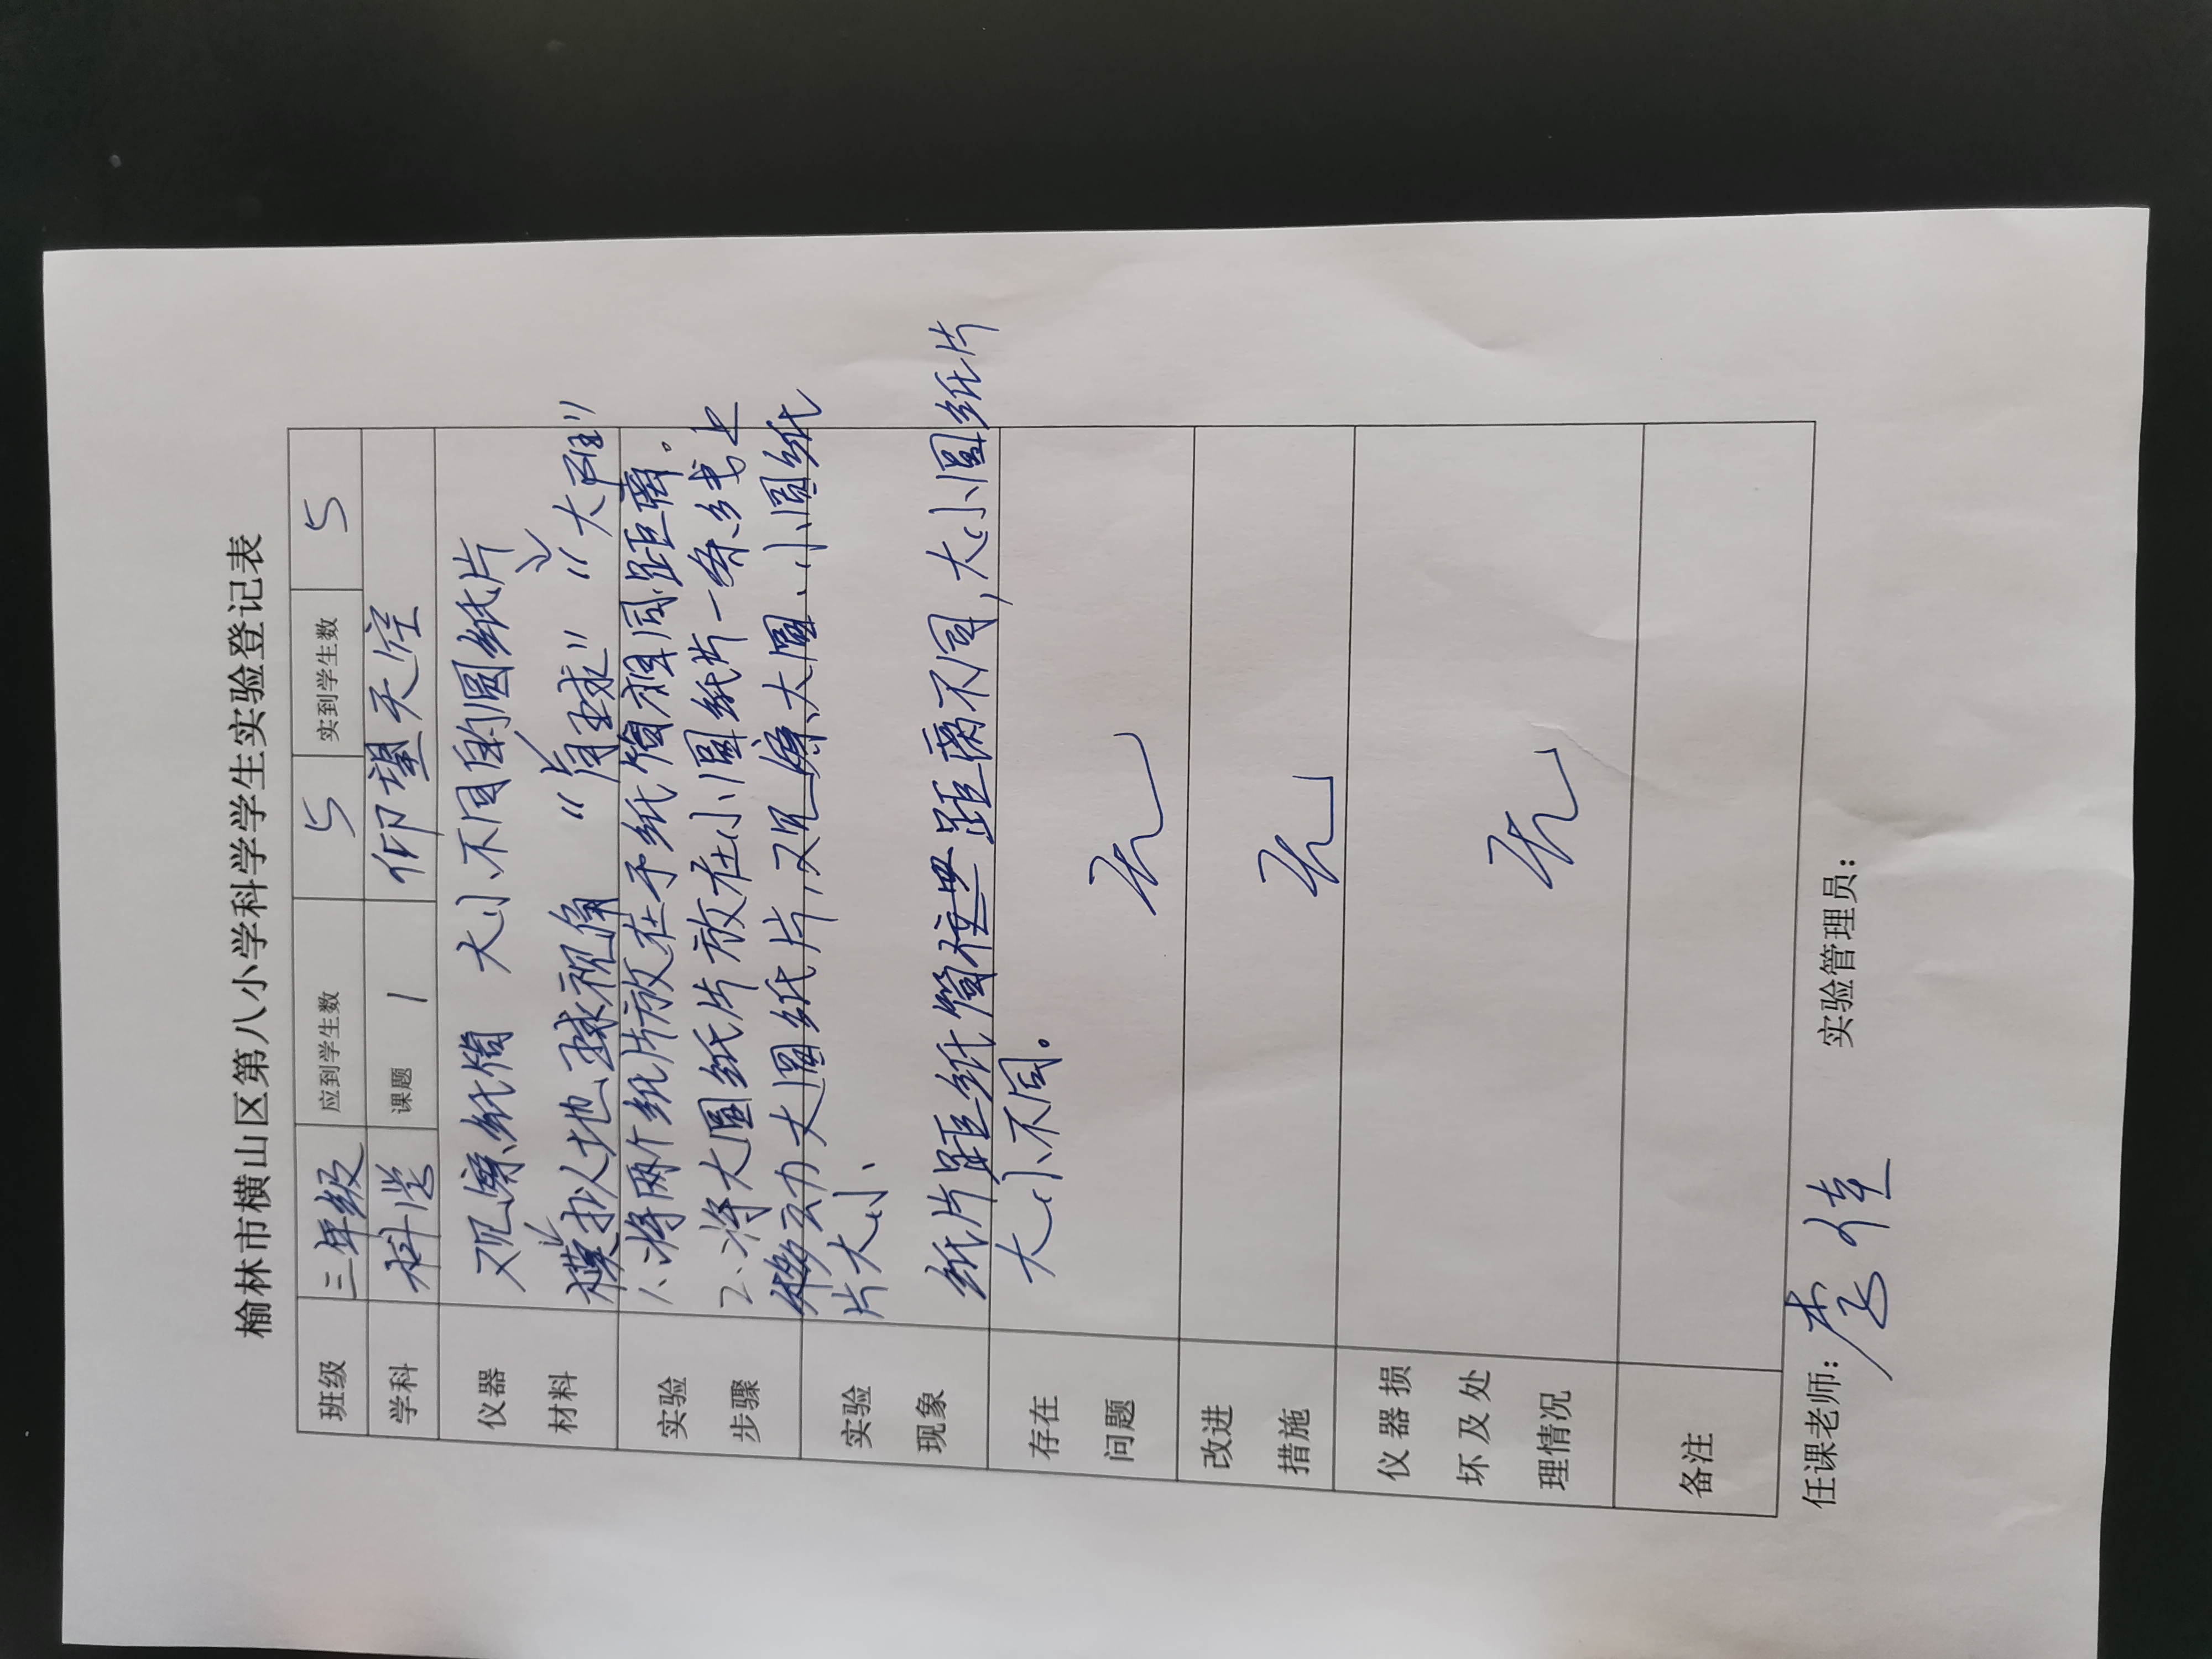 榆林市横山区第八小学科学学生实验登记表
班级 三年级 应到学生数 5 实到学生数 5
学科 科学 课题 1 仰望天空
仪器 观察纸筒 大小不同的圆纸片
材料 模拟人地球视角 “月球” “大阳”
实验 1、将两个纸片放在于纸筒相同距离。
步骤 2、将大圆纸片放在小圆纸片一条线上
移动大圆纸片,观察大圆、小圆纸
实验 片大小、
现象 纸片距纸筒 距离不同,大小圆纸片
大小不同。
存在
问题 无
改进
措施 无
仪器损
坏及处 无
理情况
备注
任课老师: 李佳 实验管理员: